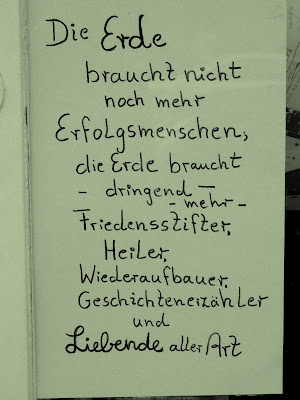 Die Erde
braucht nicht
noch mehr
Erfolgsmenschen,
die Erde braucht
- dringend -
- mehr -
Friedensstifter,
Heiler,
Wiederaufbauer,
Geschichtenerzähler
und
Liebende aller Art